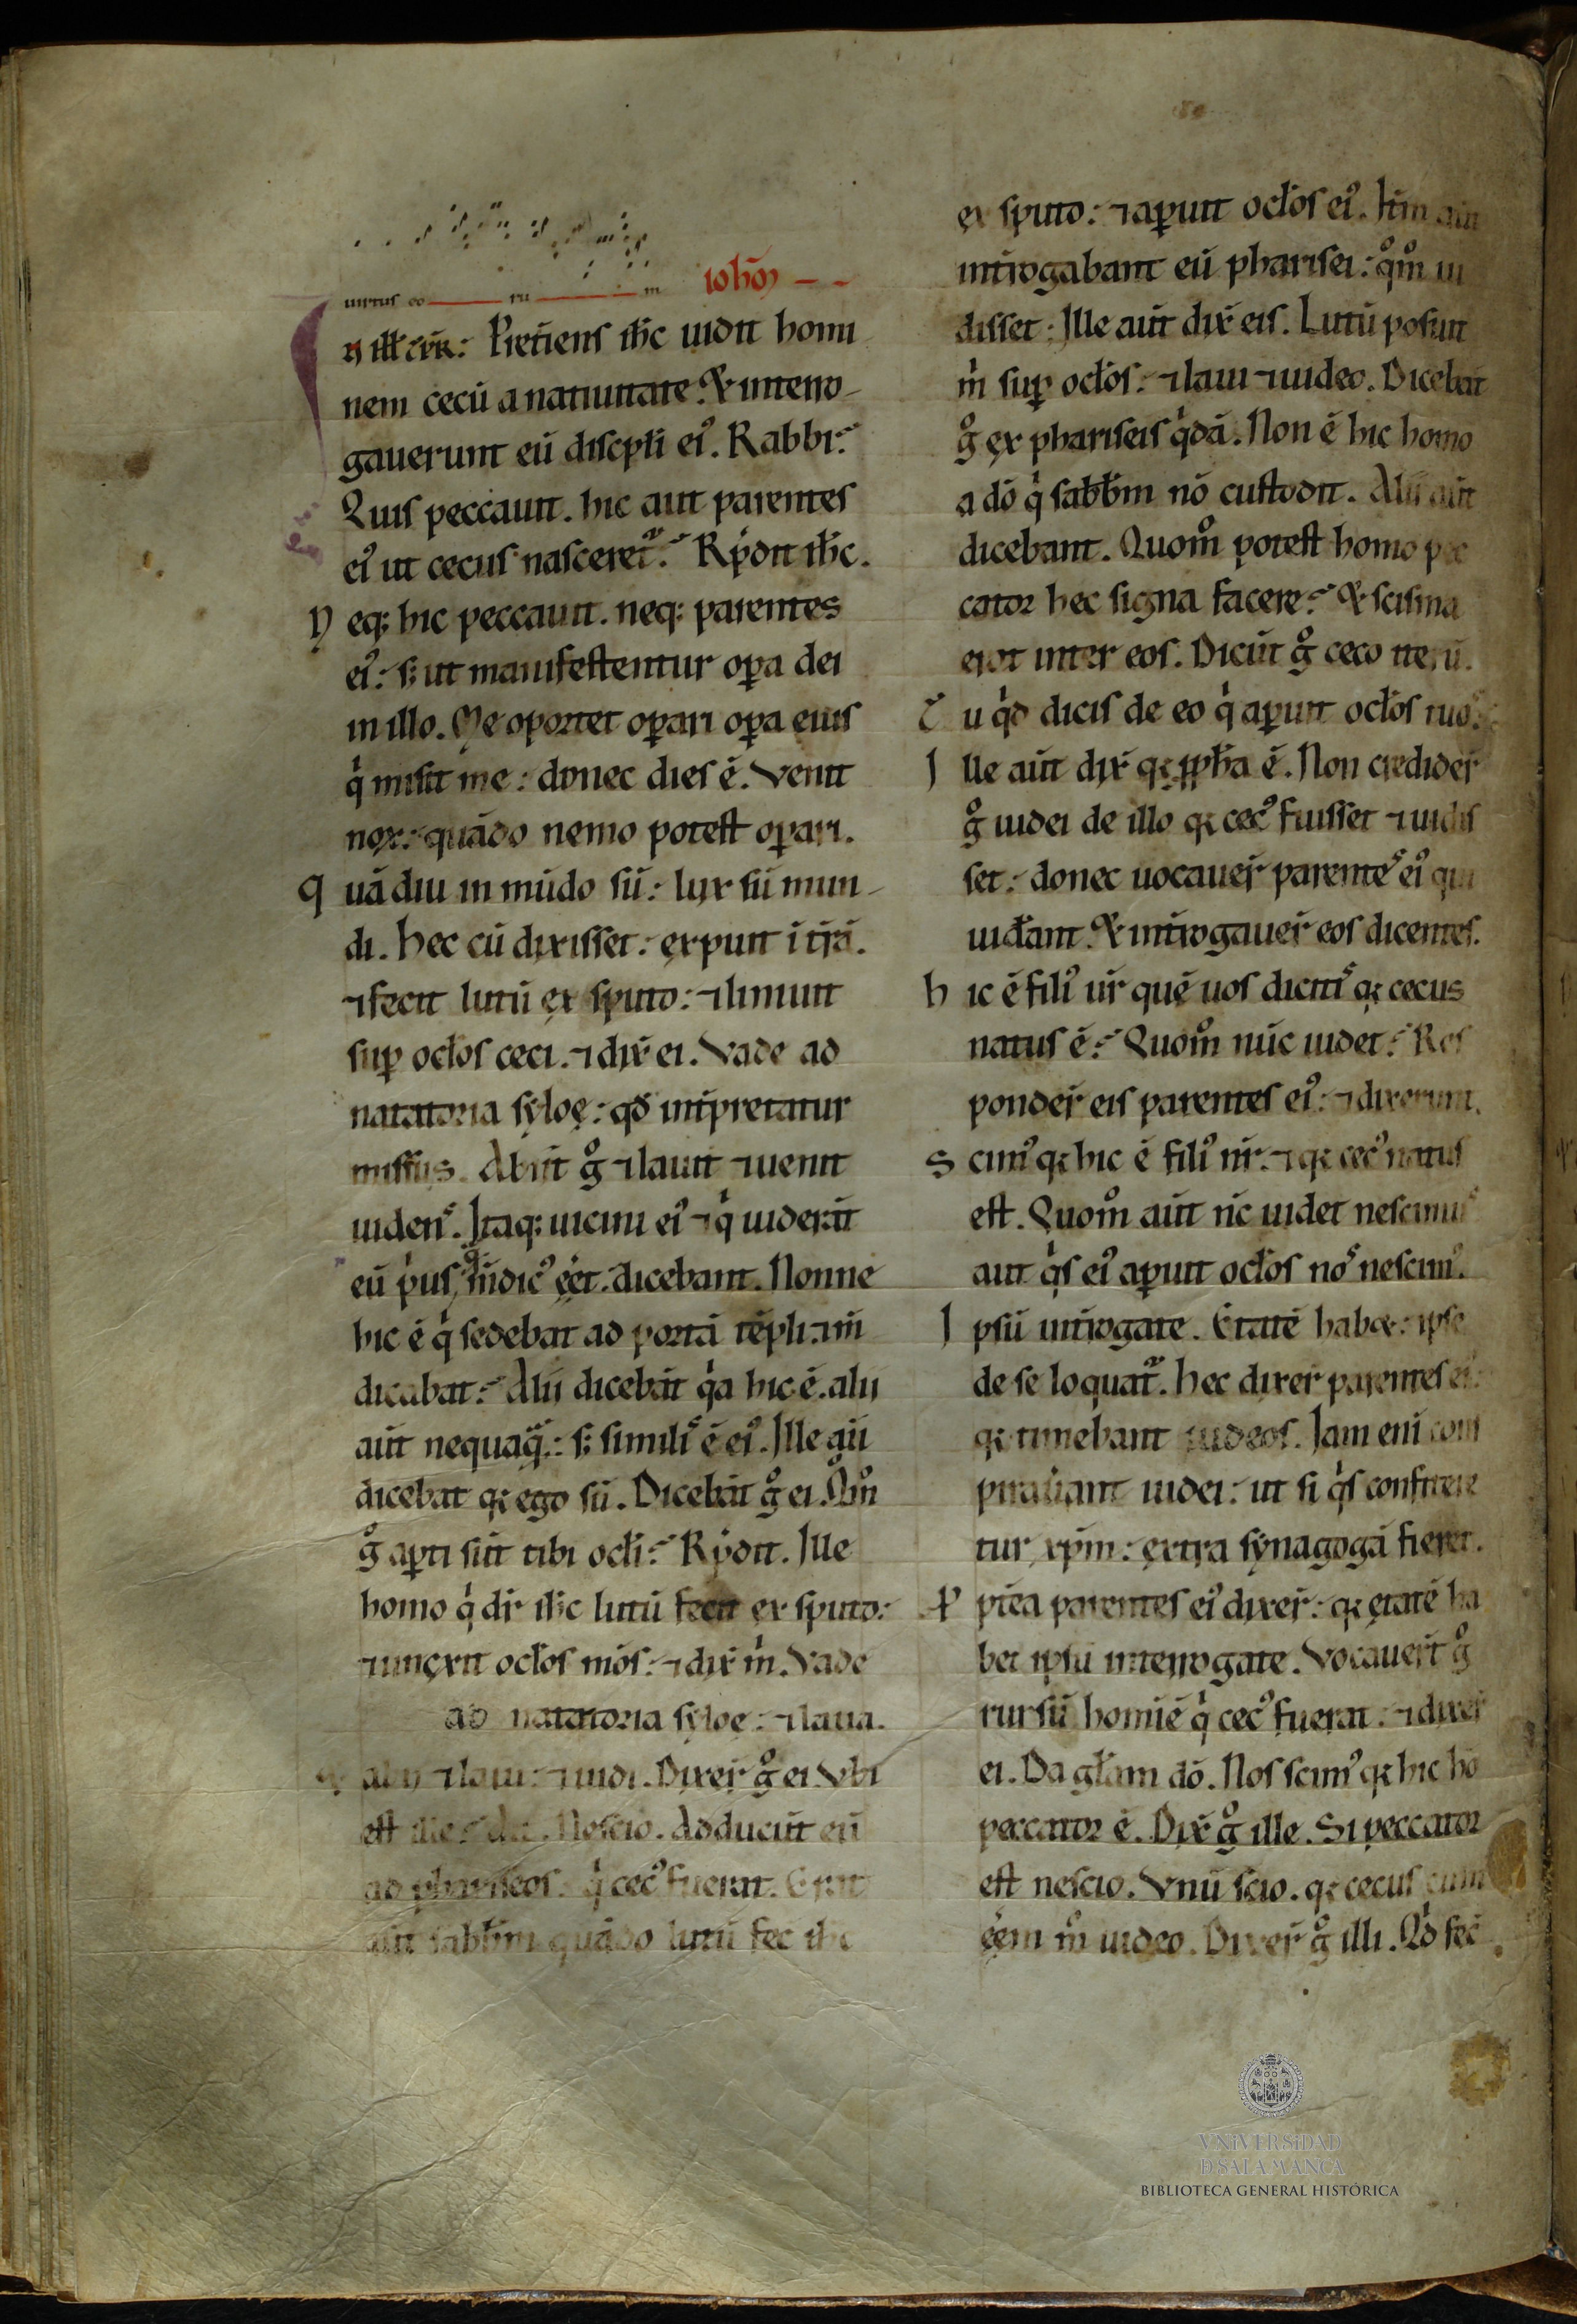 uirtus eo ru m ioħōs
n iłł tēr̄. P̄retiens ih̄c uidit homi
nem cecū a natiuitate. & interro-
gauerunt eū discpłi ei᾽. Rabbi.
Quis peccauit. hic aut parentes
ei᾽ ut cecus nasceret᷑. R̄pdit ih̄c.
N eq; hic peccauit. neq; parentes
ei᾽. s; ut manifestentur oꝑa dei
in illo. Me oportet oꝑari oꝑa eius
q̇ misit me: donec dies ē. Venit
nox: quādo nemo potest oꝑari.
q uā diu in mūdo sū: lux sū mun-
di. hec cū dixisset: expuit ī t̄rā.
⁊ fecit lutū ex sputo: ⁊ liniuit
suꝑ ocłos ceci. ⁊ dix̄ ei. Vade ad
natatoria syloę: qđ int̄pretatur
missus. Abiit g̊ ⁊ lauit ⁊ uenit
uidens. Itaq; uicini ei᾽ ⁊ q̇ uiderāt
eū p̄us q̄ m̄dic᾽ eēt. dicebant. Nonne
hic ē q̇ sedebat ad portā tēpli. ⁊ m̄
dicabat. Alii dicebāt q̇a hic ē. alii
aūt nequaq̄.: s; simil᾽ ē ei᾽. Ille aū
dicebat q; ego sū. Dicebāt g̊ ei. Q̊m̊
g̊ aꝑti sūt tibi ocłi. R̄pdit. Ille
homo q̇ dr̄ ih̄c lutū fecit ex sputo:
⁊ unęxit ocłos mōs: ⁊ dix̄ m̄. Vade
ad natatoria syloe: ⁊ laua.
& abii ⁊ laui: ⁊ uidi. Dixer̄ g̊ ei. Vbi
est ille. Ait. Nescio. Adducūt eū
ad phariseos. q̇ cec᾽ fuerat. Erat
aūt sabb̄m quādo lutū fec̄ ih̄c
ex sputo: ⁊ aꝑuit ocłos ei᾽. It̄m aūt
int̄rogabant eū pharisei: q̊m̊ ui
disset. Ille aūt dix̄ eis. Lutū posuit
m̄ suꝑ ocłos: ⁊ laui ⁊ uideo. Dicebāt
g̊ ex phariseis q̇dā. Non ē hic homo
a dō q̇ sabb̄m nō custodit. Alii aūt
dicebant. Quom̊ potest homo pec
cator hec signa facere. & scisma
erat inter eos. Dicūt g̊ ceco iterū.
T u q̇d dicis de eo q̇ aꝑuit ocłos tuos.
I lle aūt dix̄ q; ꝓph̄a ē. Non credider̄
g̊ iudei de illo q; cec᾽ fuisset ⁊ uidis
set: donec uocauer̄ parentes ei᾽ qui
uiđant. & int̄rogauer̄ eos dicentes.
h ic ē fili᾽ ūr quē uos dicitis q; cecus
natus ē. Quom̊ nūc uidet. Res
ponder̄ eis parentes ei᾽: ⁊ dixerunt.
S cim᾽ q; hic ē fili᾽ n̄r. ⁊ q; cec᾽ natus
est. Quom̊ aūt nc̄ uidet nescimus
aut q̇s ei᾽ aꝑuit ocłos nos nescim᾽.
I psū int̄rogate. Etatē habet: ipse
de se loquat᷑. hec dixer̄ parentes ei᾽
q; timebant iudeos. Iam eni cons
pirauant iudei: ut si q̇s confitere
tur xp̄m: extra synagogā fieret.
P p̄tea parentes ei᾽ dixer̄: q; ętatē ha
bet ipsū interrogate. Vocauert̄ g̊
rursū homiē q̇ cec᾽ fuerat. ⁊ dixer̄
ei. Da głam dō. Nos scim᾽ q; hic hō
peccator ē. Dix̄ g̊ ille. Si peccator
est nescio. Vnū scio. q; cecus cum
eēm m̊ uideo. Dixer̄ g̊ illi. Q̇d fec̄
VNIVERSIDAD
D SALAMANCA
BIBLIOTECA GENERAL HISTÓRICA